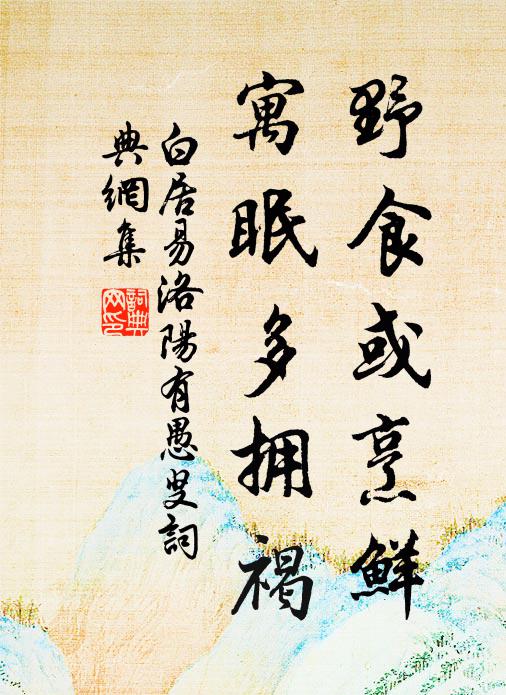 野食或烹鮮
寓眠多拥褐
白居易洛陽有愚叟詞
典網集
詞典
网印